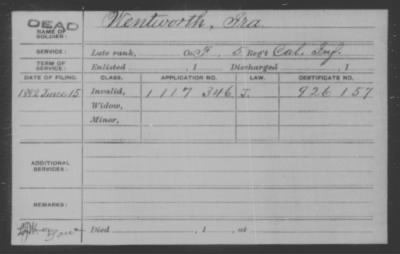 DEAD
NAME OF SOLDIER: Wentworth, Ira
SERVICE: Late rank, Co. F, 5 Reg't Cal. Inf.
TERM OF SERVICE: Enlisted , 1 Discharged , 1
DATE OF FILING. CLASS. APPLICATION NO. LAW. CERTIFICATE NO.
1892 June 15 Invalid, 1117 346 J. 926 157
Widow,
Minor,
ADDITIONAL SERVICES:
REMARKS:
Died , 1 , at